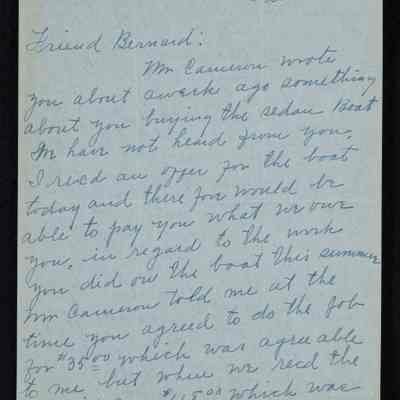 Friend Bernard:
Wm Cameron wrote
you about aweek ago something
about you buying the sedan Boat
We have not heard from you,
I rec'd an offer for the boat
today and there fore would be
able to pay you what we owe
you, in regard to the work
you did on the boat this summer
Wm Cameron told me at the
time you agreed to do the job
for $35.00 which was agreeable
to me but when we recd the
which was